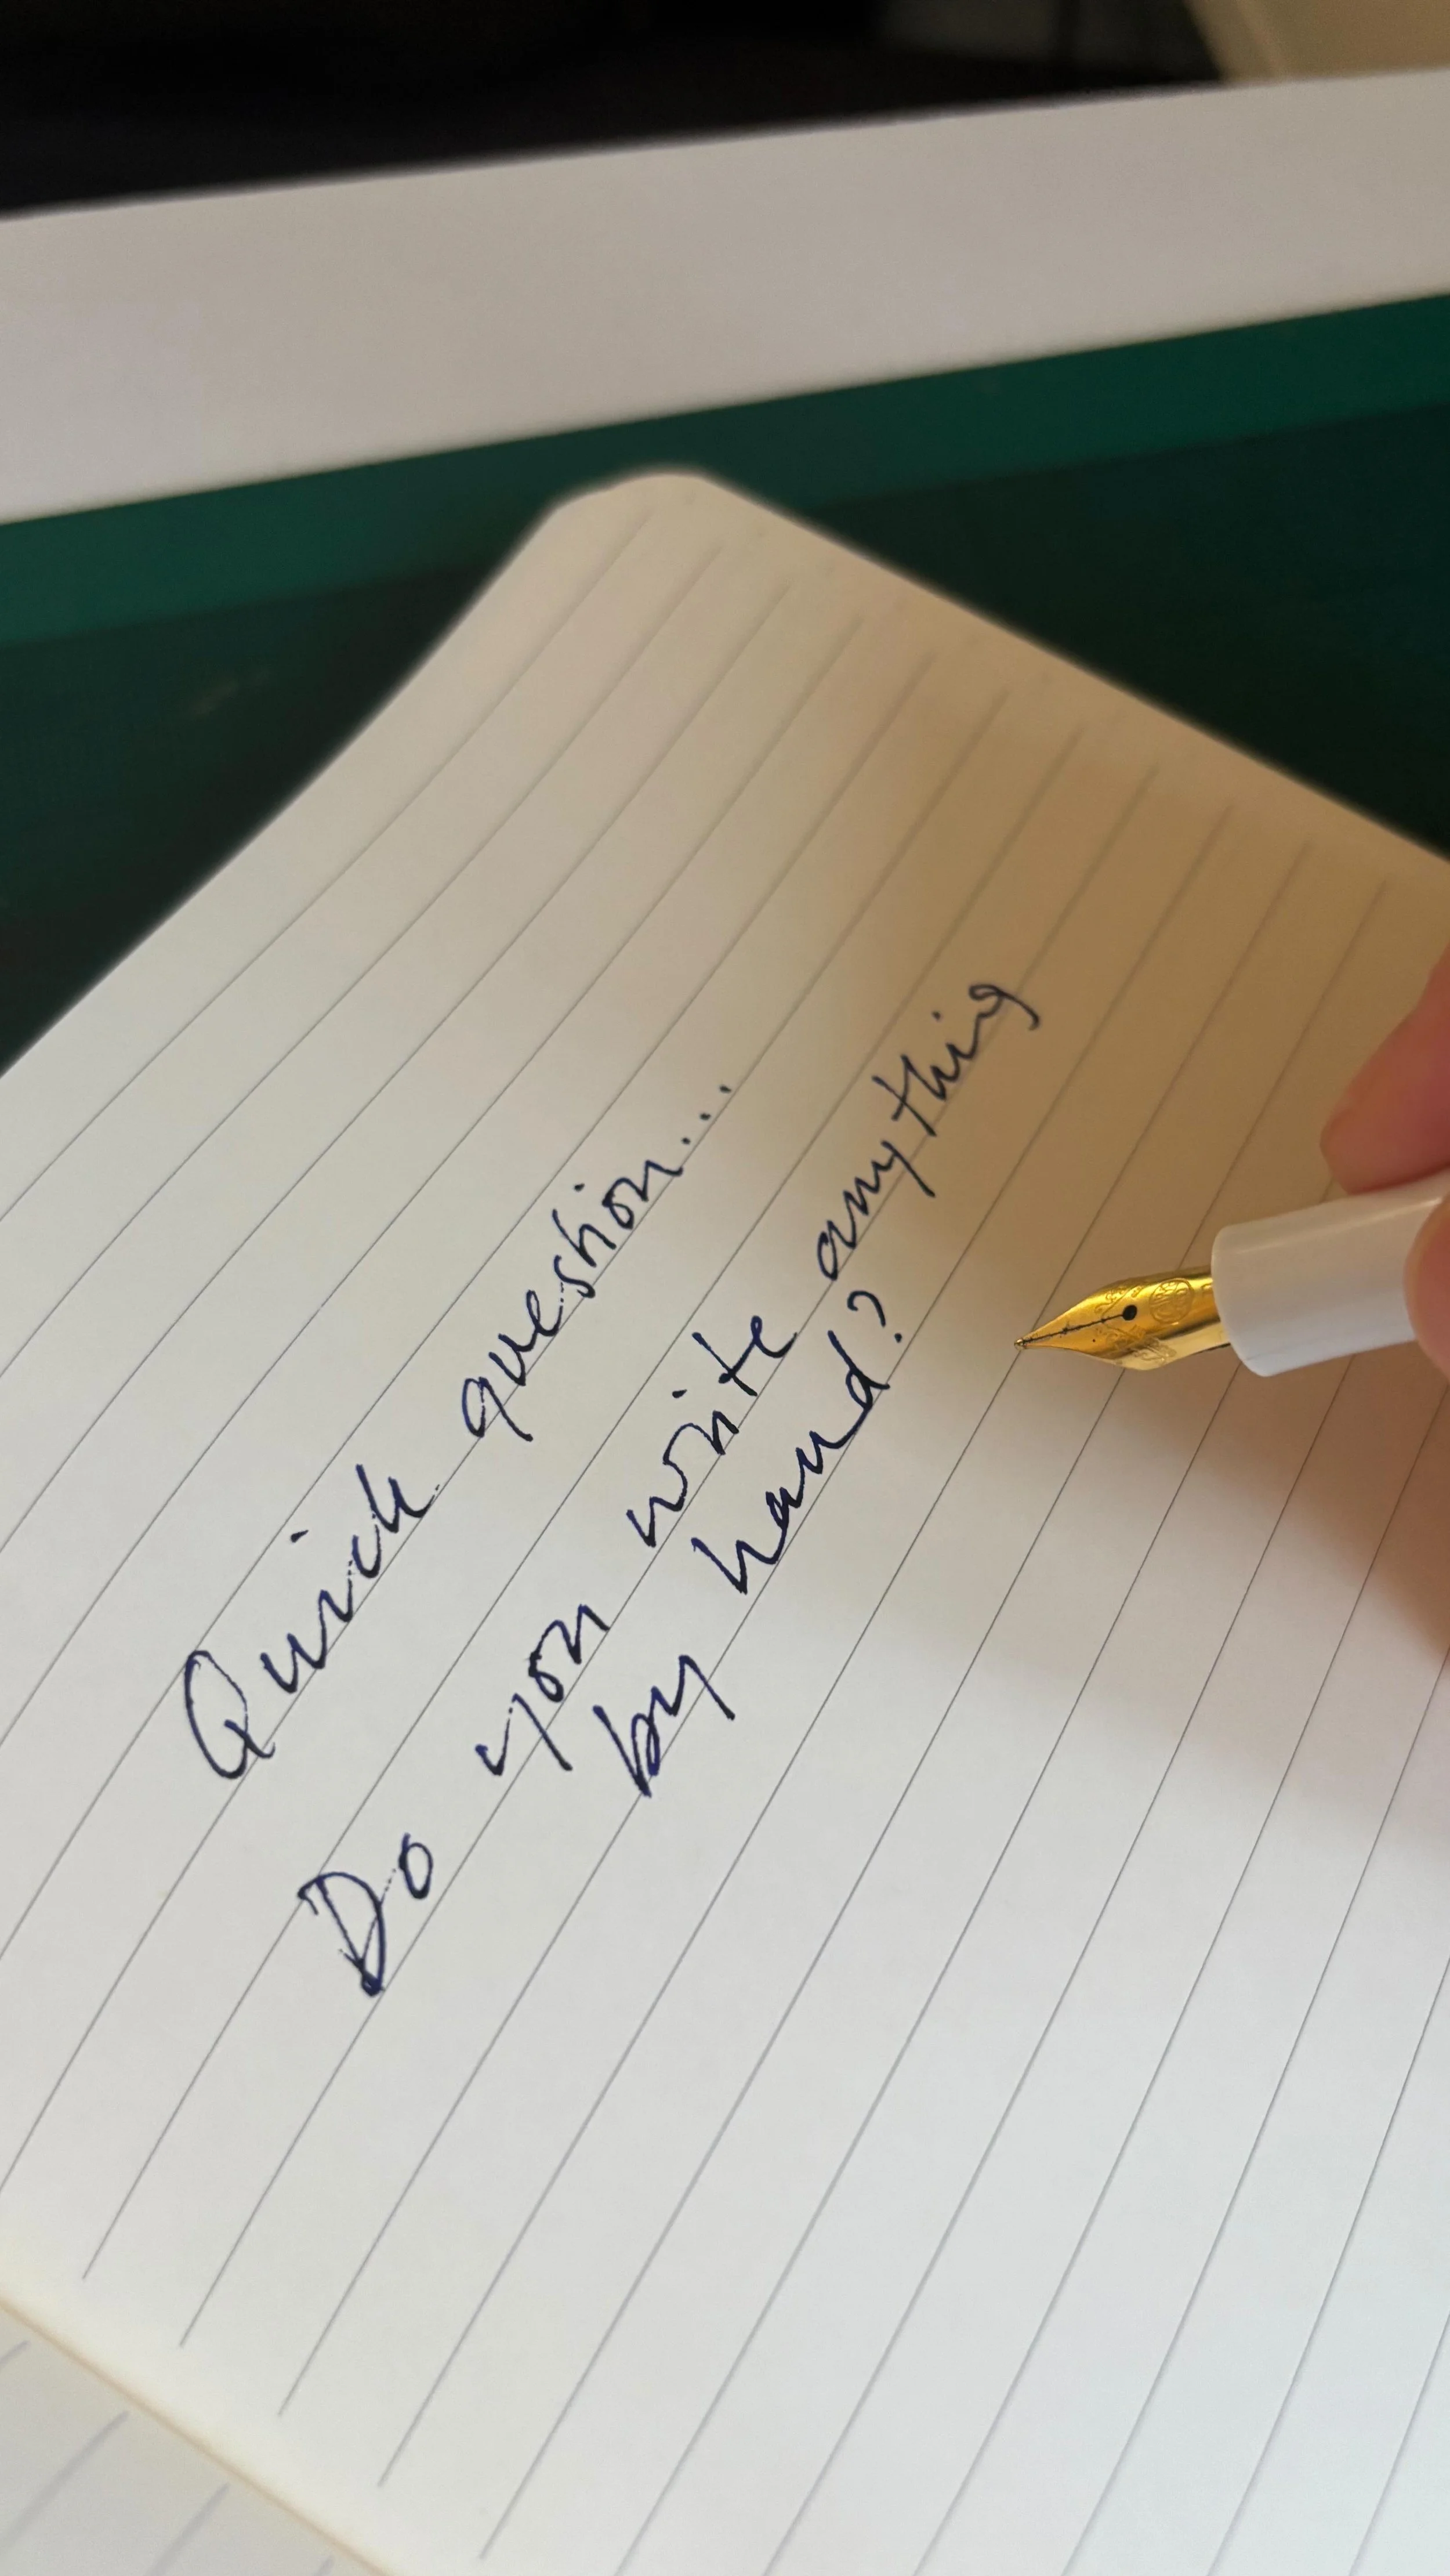 Quick question...
Do you write anything
by hand?